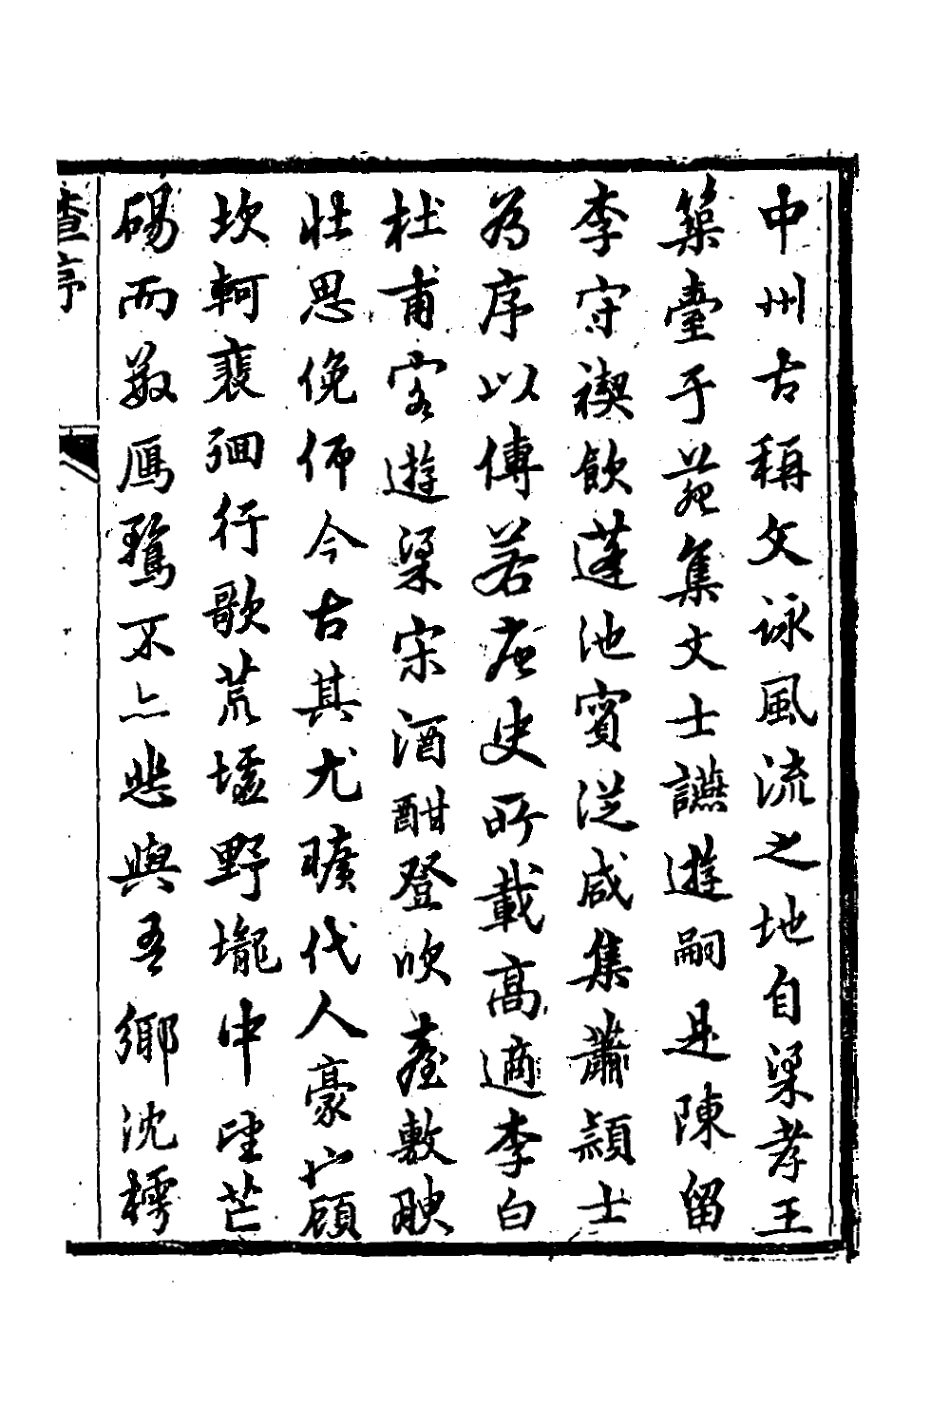 中州古稱文詠風流之地自梁孝王
築臺于苑集文士讌遊嗣是陳留
李守禊飲蓬池賓從咸集蕭頴士
為序以傳若唐史所載高適李白
杜甫客遊梁宋酒酣登吹臺敷腴
壯思俛仰今古其尤曠代人豪也顧
坎軻裵徊行歌荒墟野壠中望芒
碭而歎鴈鶩不亦悲與吾鄉沈樗
序